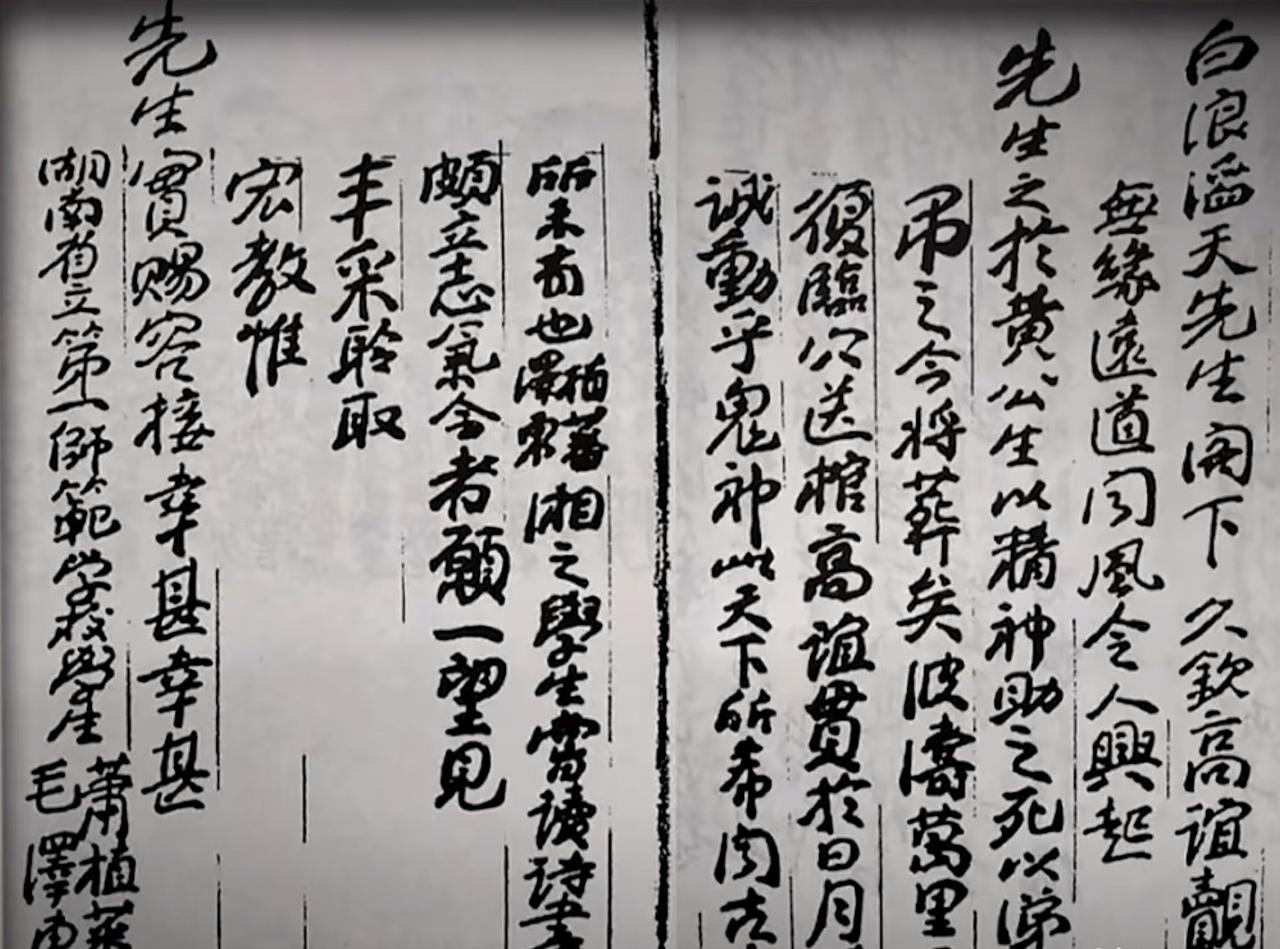 白浪滔天先生阁下久欽高誼觌
無緣遠道闻風令人興起
先生之於黄公生以精神助之死以涕
吊之今将葬矣波濤萬里
復臨穴送棺高誼貫於日月
誠動乎鬼神此天下所希闻古
所未有也植蕃澤東湘之學生嘗讀诗書
頗立志氣今者願一望見
丰采聆取
宏教惟
先生實賜容接幸甚幸甚
湖南省立第一師範学校學生
蕭植蕃
毛澤東